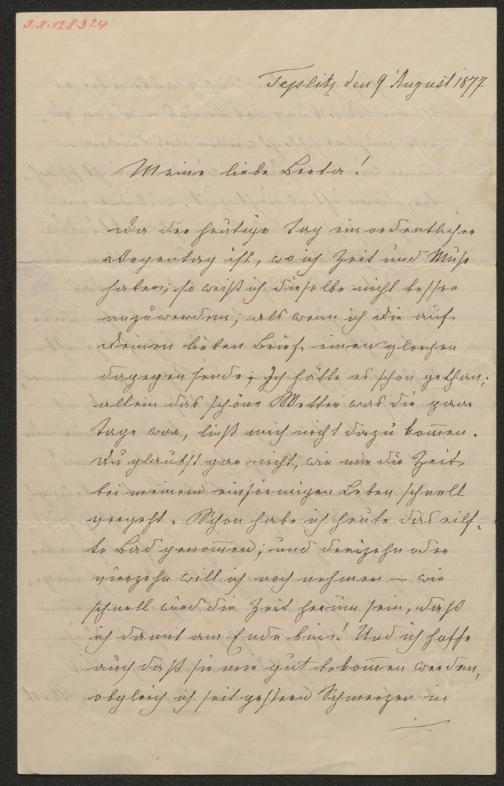 I.N. 128324
Teplitz den 9 August 1877
Meine liebe Berta!
Da der heutige Tag ein ordentlicher
Regentag ist, wo ich Zeit und Muse
habe; so weiß ich dieselbe nicht besser
anzuwenden; als wenn ich Dir auf
Deinen lieben Brief einen gleichen
dagegen sende; Ich hätte es schon gethan;
allein das schöne Wetter was die paar
Tage war, ließ mich nicht dazu kom̄en.
Du glaubst gar nicht, wie mir die Zeit
bei meinem einförmigen Leben schnell
vergeht. Schon habe ich heute das eilf-
te Bad genom̄en; und dreizehn oder
vierzehn will ich noch nehmen – wie
schnell wird die Zeit herum sein, daß
ich damit am Ende bin! Und ich hoffe
auch daß sie mir gut bekom̄en werden,
obgleich ich seit gestern Schmerzen in